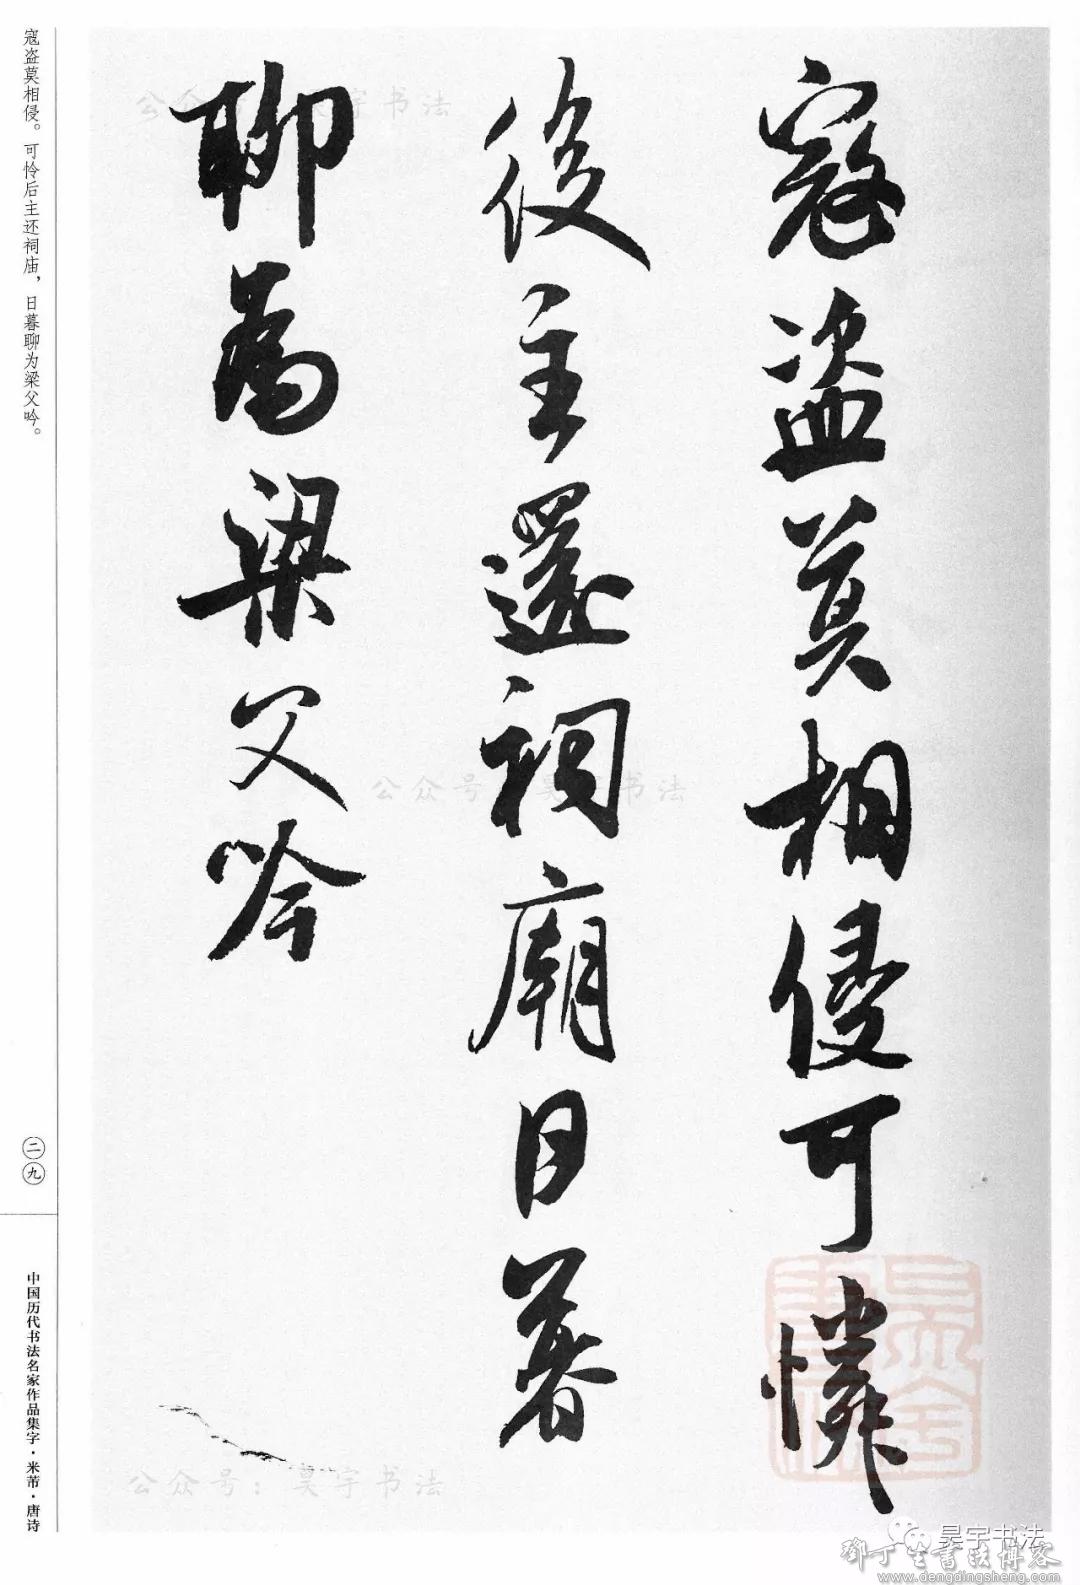 寇盗莫相侵可憐
後主還祠廟日暮
聊為梁父吟
寇盗莫相侵。可怜后主还祠庙，日暮聊为梁父吟。
二九
中国历代书法名家作品集字·米芾·唐诗
公众号：昊宇书法
公众号：昊宇书法
公众号：昊宇书法
昊宇书法
鄧丁生書法博客
www.dengdingsheng.com